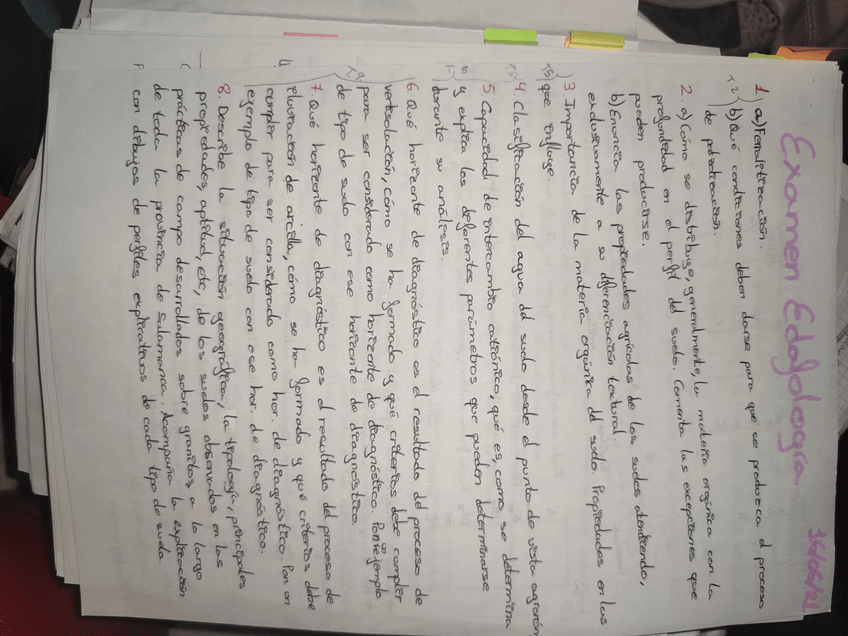 Examen Edafología 16/06/21
1. a) Ferralitización.
b) Qué condiciones deben darse para que se produzca el proceso
de podzolización.
2. a) Cómo se distribuye, generalmente, la materia orgánica con la
profundidad en el perfil del suelo. Comenta las excepciones que
pueden producirse.
b) Enuncia las propiedades agrícolas de los suelos atendiendo,
exclusivamente a su diferenciación textural.
3. Importancia de la materia orgánica del suelo. Propiedades en las
que influye.
4. Clasificación del agua del suelo desde el punto de vista agronóm
5. Capacidad de intercambio catiónico, qué es, como se determina
y explica los diferentes parámetros que pueden determinarse
durante su análisis.
6. Qué horizonte de diagnóstico es el resultado del proceso de
vertisolación, cómo se ha formado y qué criterios debe cumplir
para ser considerado como horizonte de diagnóstico. Pon un ejemplo
de tipo de suelo con ese horizonte de diagnóstico.
7. Qué horizonte de diagnóstico es el resultado del proceso de
iluviación de arcilla, cómo se ha formado y qué criterios debe
cumplir para ser considerado como hor. de diagnóstico. Pon un
ejemplo de tipo de suelo con ese hor. de diagnóstico.
8. Describe la situación geográfica, la tipología, principales
propiedades, aptitud, etc, de los suelos observados en las
prácticas de campo desarrollados sobre granitos a lo largo
de toda la provincia de Salamanca. Acompaña la explicación
con dibujos de perfiles explicativos de cada tipo de suelo.